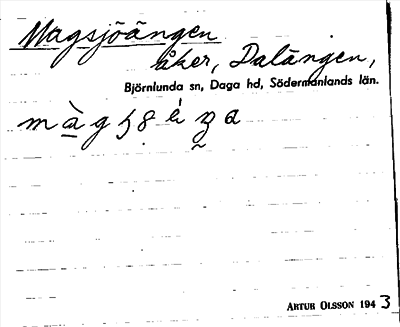 Magsjöängen
åker, Dalängen,
Björnlunda sn, Daga hd, Södermanlands län.
ARTUR OLSSON 1943